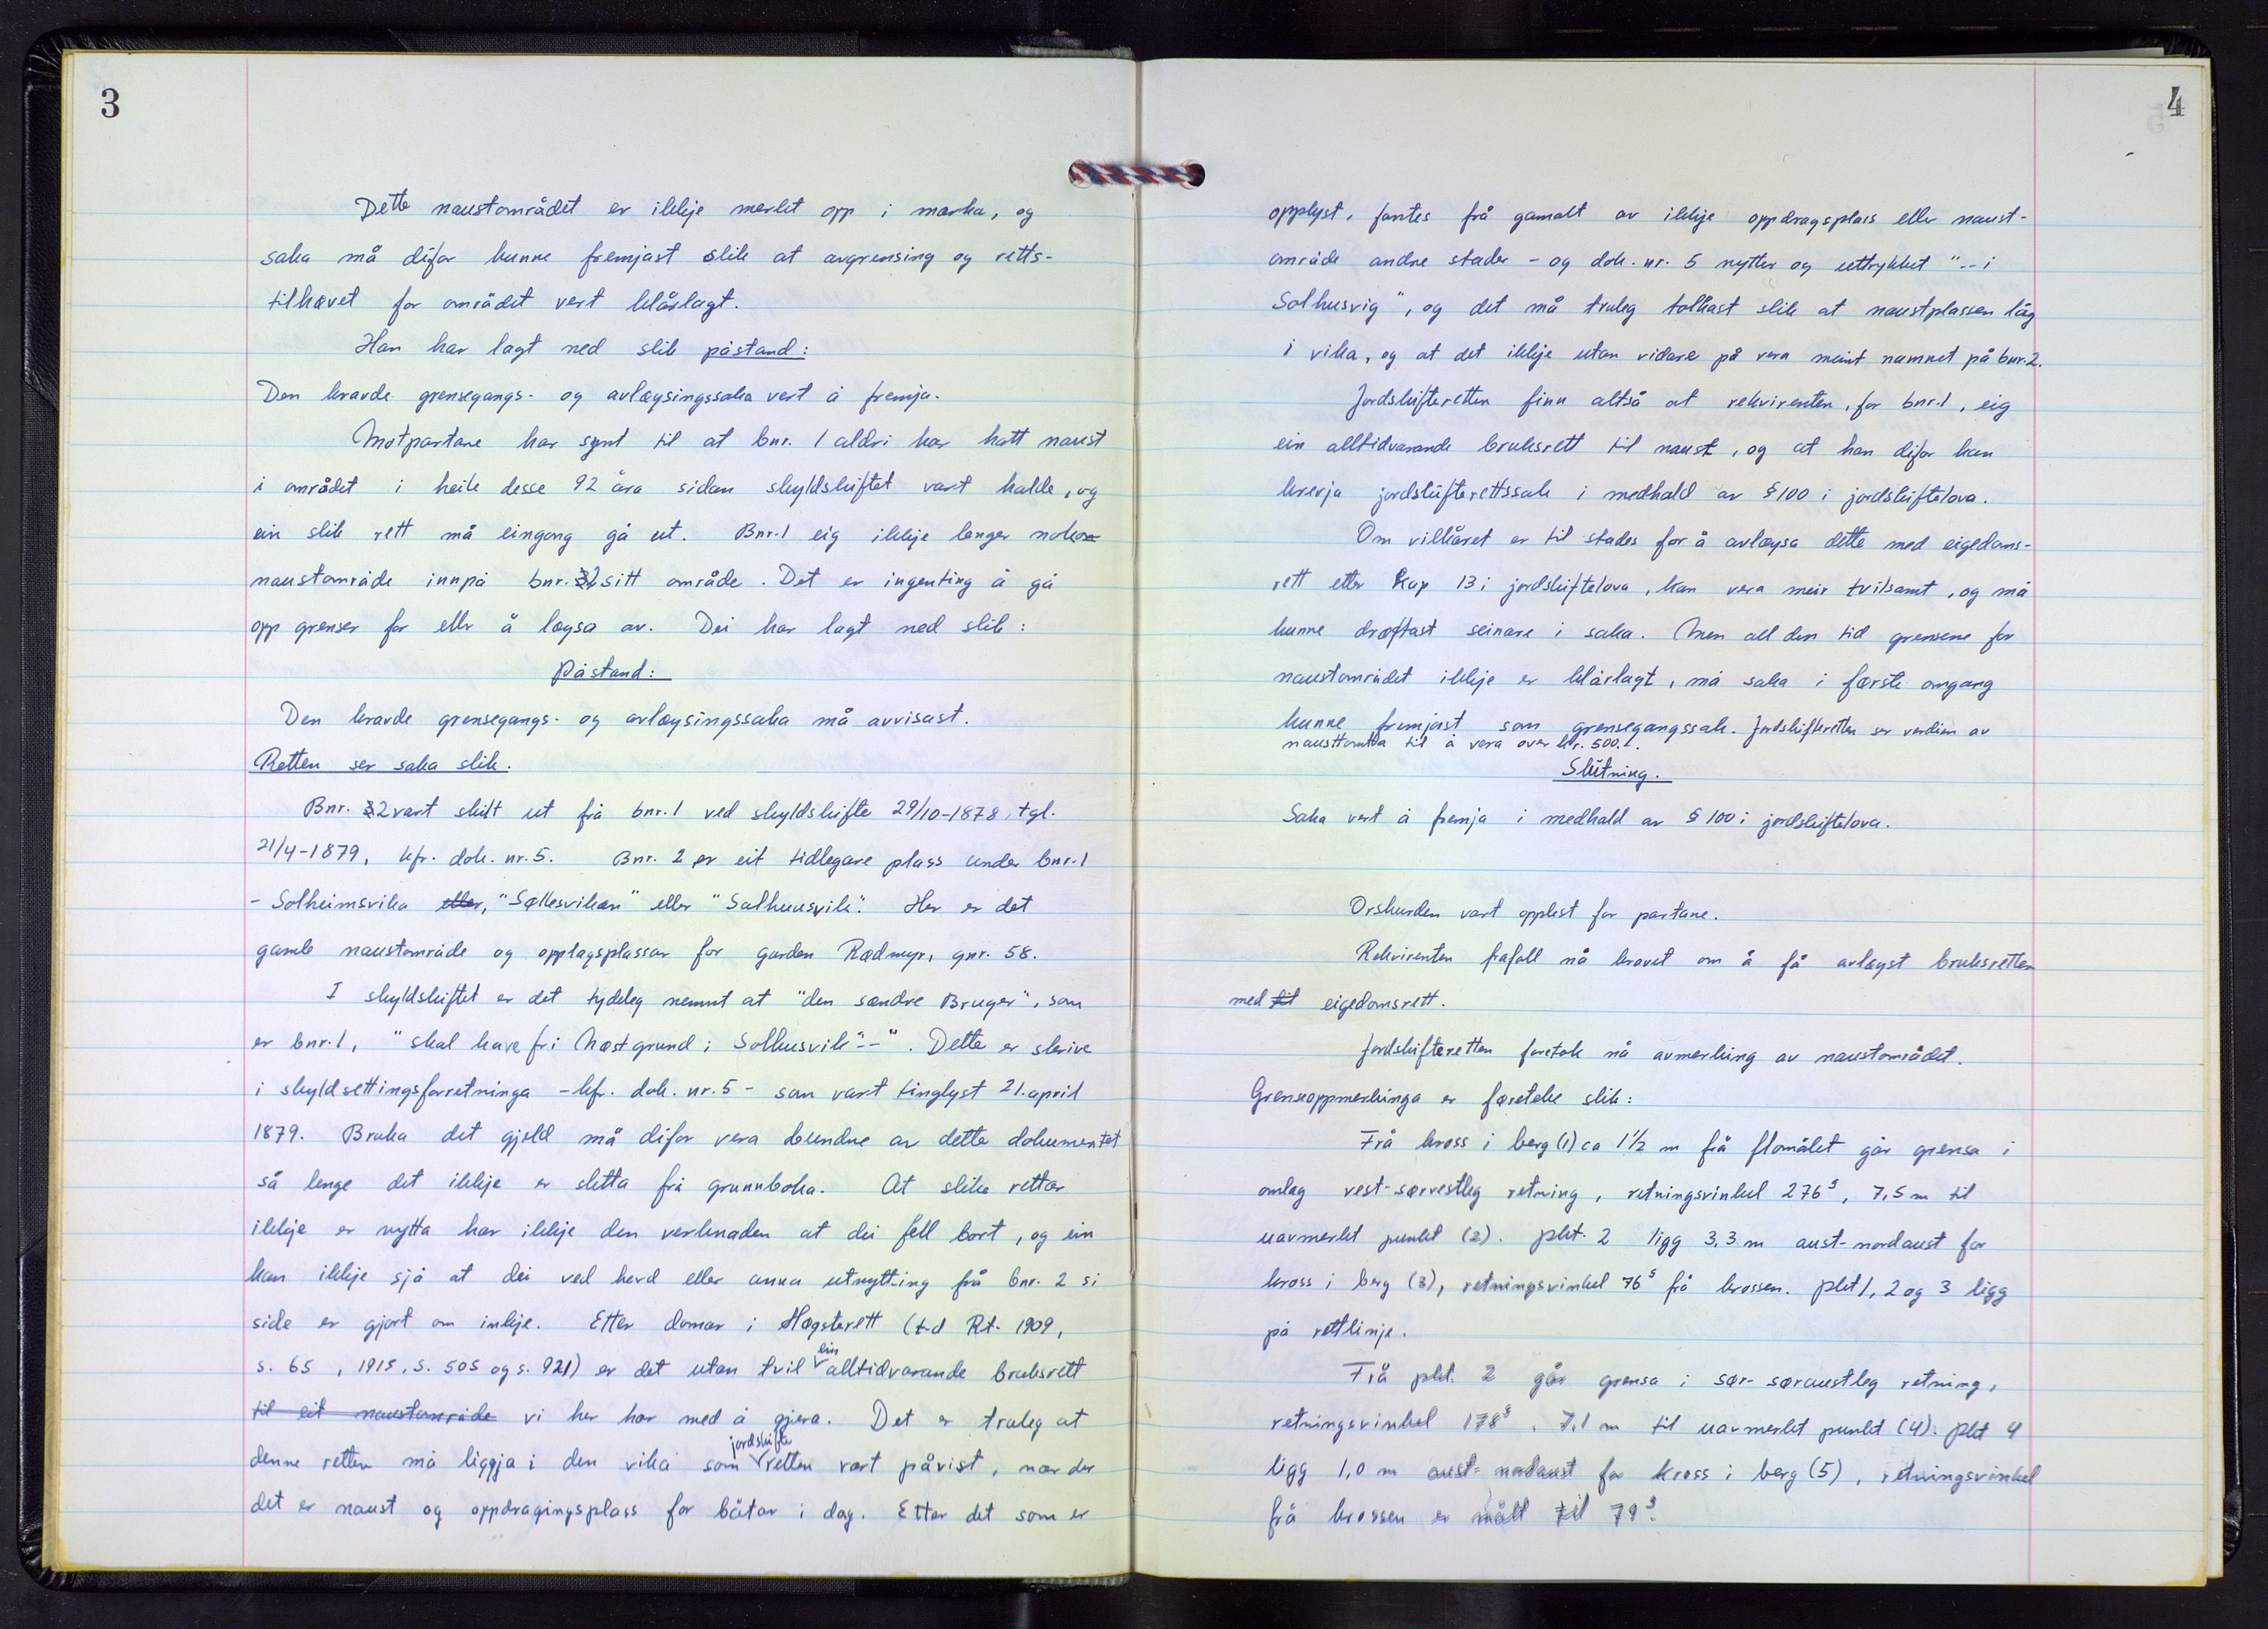 3
Dette naustområdet er ikkje merket opp i marka, og
saka må difor kunne fremjast slik at avgrensing og retts-
tilhøvet for området vert klårlagt.
Han har lagt ned slik påstand:
Den kravde grensegangs- og avløysingssaka vert å fremja.
Motpartane har synt til at bnr. 1 aldri har hatt naust
i området i heile desse 92 åra sidan skyldskiftet vart halde, og
ein slik rett må eingong gå ut. Bnr. 1 eig ikkje lenger noko
naustområde innpå bnr. 2 sitt område. Det er ingenting å gå
opp grenser for eller å løysa av. Dei har lagt ned slik:
Påstand:
Den kravde grensegangs- og avløysingssaka må avvisast.
Retten ser saka slik.
Bnr. 2 vart skilt ut frå bnr. 1 ved skyldskifte 29/10-1878, tgl.
21/4-1879, kfr. dok. nr. 5. Bnr. 2 er eit tidlegare plass under bnr. 1
- Solheimsvika eller, "Sollesviken" eller "Solhuusvik". Her er det
gamle naustområde og opplagsplassar for garden Rødmyr, gnr. 58.
I skyldskiftet er det tydeleg nemnt at "den søndre Bruger", som
er bnr. 1, "skal have fri Nøstgrund i Solhusvik"--". Dette er skrive
i skyldsettingsforretninga - kfr. dok. nr. 5 - som vart tinglyst 21. april
1879. Bruka det gjeld må difor vera bundne av dette dokumentet
så lenge det ikkje er sletta frå grunnboka. At slike rettar
ikkje er nytta har ikkje den verknaden at dei fell bort, og ein
kan ikkje sjå at dei ved hevd eller anna utnytting frå bnr. 2 si
side er gjort om inkje. Etter domar i Høgsterett (t.d Rt. 1909,
s. 65, 1915, s. 505 og s. 921) er det utan tvil ein alltidvarande bruksrett
til eit naustområde vi her har med å gjera. Det er truleg at
denne retten må liggja i den vika som jordskifteretten vart påvist, nær der
det er naust og oppdragingsplass for båtar i dag. Etter det som er
4
opplyst, fantes frå gamalt av ikkje oppdragsplass eller naust-
område andre stader - og dok. nr. 5 nytter og uttrykket "--i
Solhusvig", og det må truleg tolkast slik at naustplassen låg
i vika, og at det ikkje utan vidare på vera meint namnet på bnr. 2.
Jordskifteretten finn altså at rekvirenten, for bnr. 1, eig
ein alltidvarande bruksrett til naust, og at han difor kan
krevja jordskifterettssak i medhald av § 100 i jordskiftelova.
Om vilkåret er til stades for å avløysa dette med eigedoms-
rett etter kap 13 i jordskiftelova, kan vera meir tvilsamt, og må
kunne drøftast seinare i saka. Men all den tid grensene for
naustområdet ikkje er klårlagt, må saka i første omgang
kunne fremjast som grensegangssak. Jordskifteretten ser verdien av
nausttomta til å vera over kr. 500.-.
Slutning.
Saka vert å fremja i medhald av § 100 i jordskiftelova.
Orskurden vart opplest for partane.
Rekvirenten frafall nå kravet om å få avløyst bruksretten
med til eigedomsrett.
Jordskifteretten foretok nå avmerking av naustområdet.
Grenseoppmerkinga er føreteke slik:
Frå kross i berg (1) ca 1 1/2 m frå flomålet går grensa i
omlag vest-sørvestleg retning, retningsvinkel 276g, 7,5 m til
uavmerket punkt (2). Pkt. 2 ligg 3,3 m aust-nordaust for
kross i berg (3), retningsvinkel 76g frå krossen. Pkt 1, 2 og 3 ligg
på rettlinje.
Frå pkt. 2 går grensa i sør-søraustleg retning,
retningsvinkel 178g, 7,1 m til uavmerket punkt (4). Pkt 4
ligg 1,0 m aust-nordaust for kross i berg (5), retningsvinkel
frå krossen er målt til 79g.